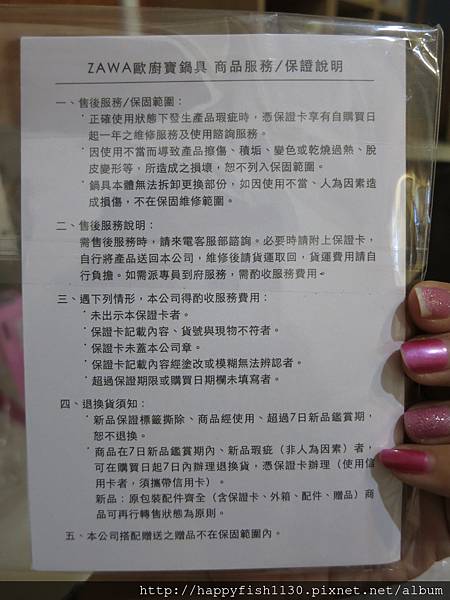 ZAWA歐廚寶鍋具 商品服務/保證說明
一、售後服務/保固範圍：
˙正確使用狀態下發生產品瑕疵時，憑保證卡享有自購買日
起一年之維修服務及使用諮詢服務。
˙因使用不當而導致產品擦傷、積垢、變色或乾燒過熱、脫
皮變形等，所造成之損壞，恕不列入保固範圍。
˙鍋具本體無法拆卸更換部份，如因使用不當、人為因素造
成損傷，不在保固維修範圍。
二、售後服務說明：
需售後服務時，請來電客服部諮詢。必要時請附上保證卡，
自行將產品送回本公司，維修後請貨運取回，貨運費用請自
行負擔。如需派專員到府服務，需酌收服務費用。
三、遇下列情形，本公司得酌收服務費用：
˙未出示本保證卡者。
˙保證卡記載內容、貨號與現物不符者。
˙保證卡未蓋本公司章。
˙保證卡記載內容經塗改或模糊無法辨認者。
˙超過保證期限或購買日期欄未填寫者。
四、退換貨須知：
˙新品保證標籤撕除、商品經使用、超過7日新品鑑賞期，
恕不退換。
˙商品在7日新品鑑賞期內、新品瑕疵（非人為因素）者，
可在購買日起7日內辦理退換貨，憑保證卡辦理（使用信
用卡者，須攜帶信用卡）。
新品：原包裝配件齊全（含保證卡、外箱、配件、贈品）商
品可再行轉售狀態為原則。
五、本公司搭配贈送之贈品不在保固範圍內。
http://happyfish1130.pixnet.net/album